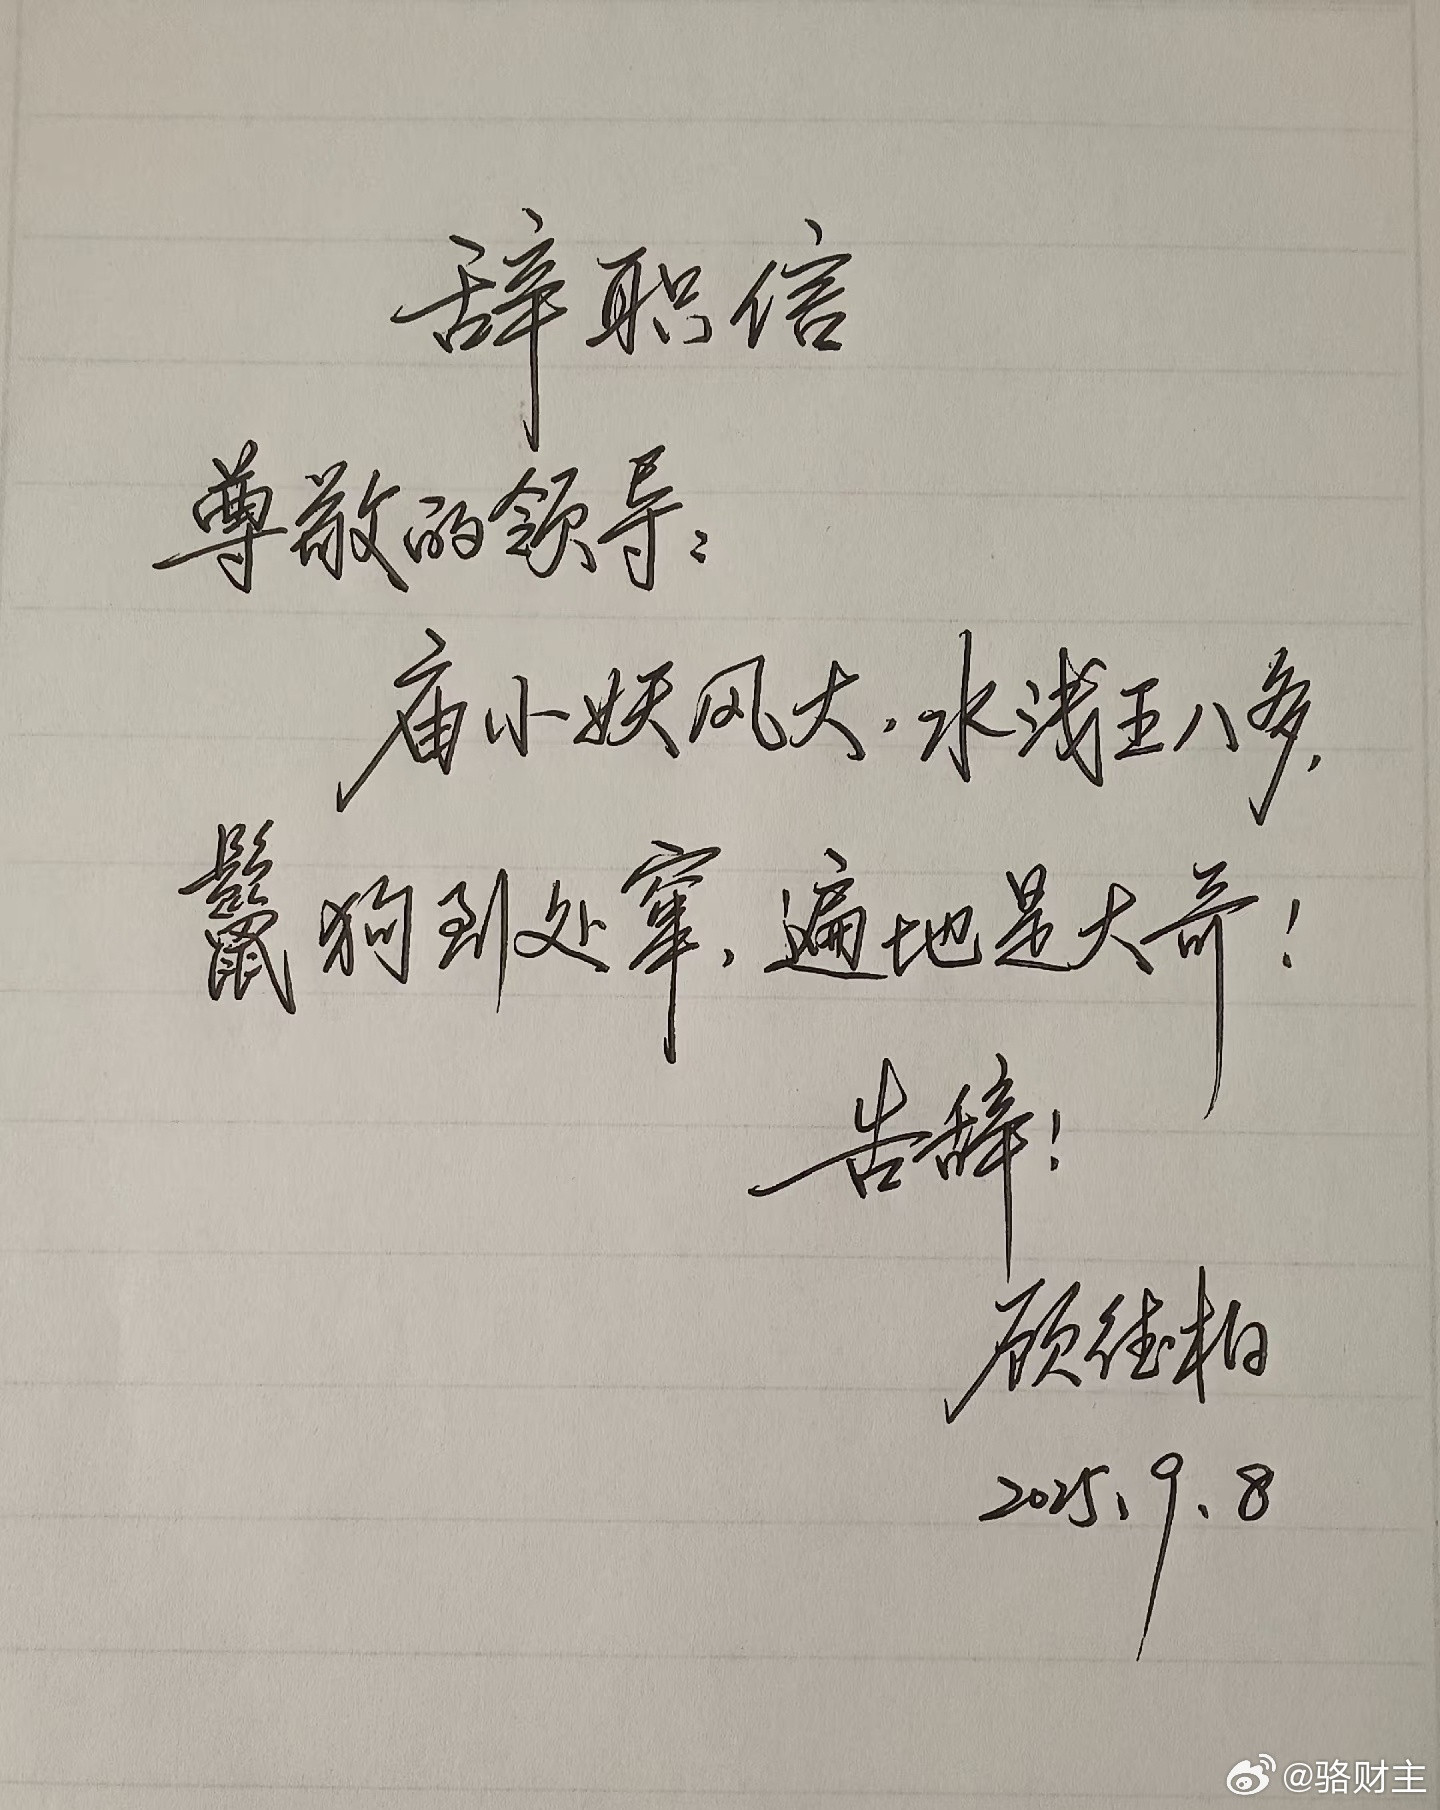 辞职信
尊敬的领导：
庙小妖风大，水浅王八多，
鬣狗到处窜，遍地是大哥！
告辞！
顾德柏
2025.9.8
@骆财主